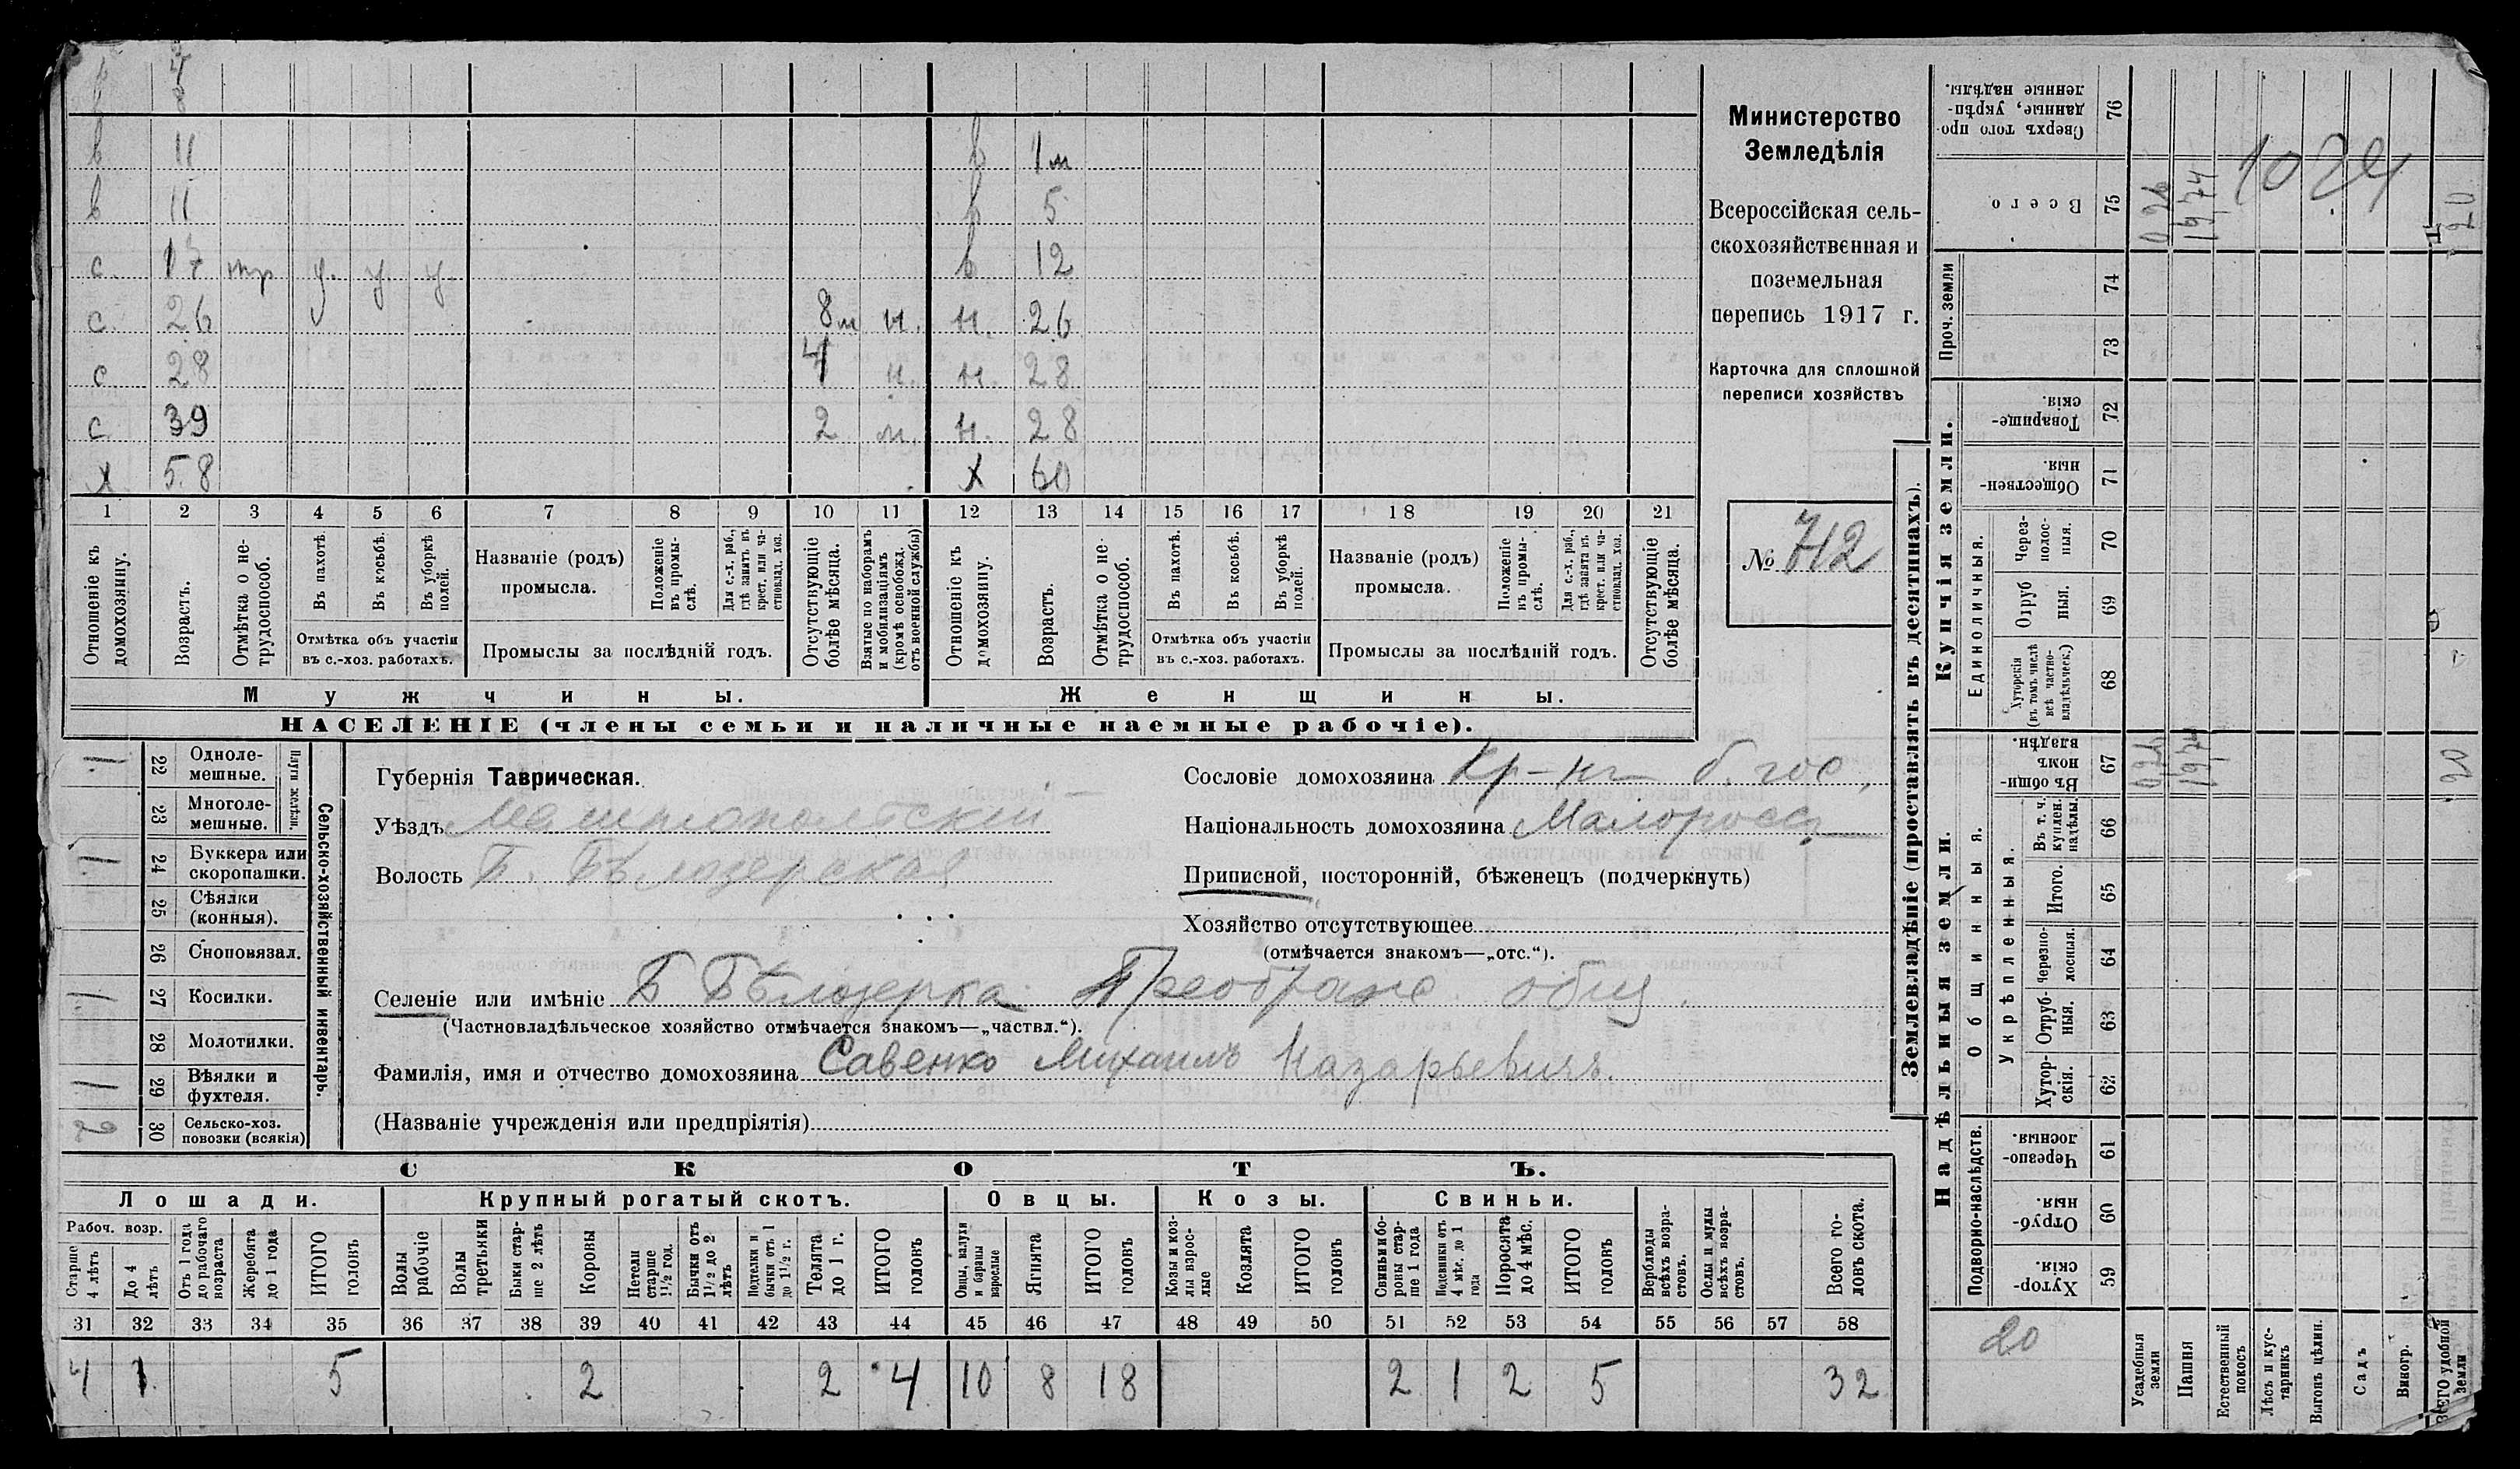 в 7
8
в 11 в 1 м
в 11 в 5
с. 17 нтр у. у у. в 12
с. 26 8 м н. н. 26
с. 28 4 н. н. 28
с. 39 2 м. н. 28
х 58 х 60
1 2 3 4 5 6 7 8 9 10 11 12 13 14 15 16 17 18 19 20 21
Отношеніе къ домохозяину.
Возрастъ.
Отмѣтка о нетрудоспособ.
Въ пахотѣ.
Въ косьбѣ.
Въ уборкѣ полей.
Отмѣтка объ участіи
въ с.-хоз. работахъ.
Названіе (родъ)
промысла.
Положеніе въ промыслѣ.
Для с.-х. раб., гдѣ занятъ въ крест. или частновлад. хоз.
Промыслы за послѣдній годъ.
Отсутствующіе болѣе мѣсяца.
Взятые по наборамъ и мобилизаціямъ (кромѣ освобожд. отъ военной службы)
Отношеніе къ домохозяину.
Возрастъ.
Отмѣтка о нетрудоспособ.
Въ пахотѣ.
Въ косьбѣ.
Въ уборкѣ полей.
Отмѣтка объ участіи
въ с.-хоз. работахъ.
Названіе (родъ)
промысла.
Положеніе въ промыслѣ.
Для с.-х. раб., гдѣ занятъ въ крест. или частновлад. хоз.
Промыслы за послѣдній годъ.
Отсутствующіе болѣе мѣсяца.
Мужчины. Женщины.
НАСЕЛЕНІЕ (члены семьи и наличные наемные рабочіе).
Министерство
Земледѣлія
Всероссійская сель-
скохозяйственная и
поземельная
перепись 1917 г.
Карточка для сплошной
переписи хозяйствъ
№ 742
Сельско-хозяйственный инвентарь.
Плуги желѣзн.
1 22 Одноле-
мешные.
23 Многоле-
мешные.
1 24 Буккера или
скоропашки.
25 Сѣялки
(конныя).
26 Сноповязал.
1 27 Косилки.
28 Молотилки.
1 29 Вѣялки и
фухтеля.
2 30 Сельско-хоз.
повозки (всякія)
Губернія Таврическая.
Уѣздъ Мелитопольскій
Волость Б. Бѣлозерская
Сословіе домохозяина Кр-нг б. гос.
Національность домохозяина Малороссъ
Приписной, посторонній, бѣженецъ (подчеркнуть)
Хозяйство отсутствующее
(отмѣчается знакомъ—„отс.“).
Селеніе или имѣніе Б Бѣлозерка Преображ. общ.
(Частновладѣльческое хозяйство отмѣчается знакомъ—„частвл.“).
Фамилія, имя и отчество домохозяина Савенко Михаилъ Назарьевичъ.
(Названіе учрежденія или предпріятія)
СКОТЪ.
Лошади. Крупный рогатый скотъ. Овцы. Козы. Свиньи.
Рабоч. возр.
Старше 4 лѣтъ
До 4 лѣтъ
Отъ 1 года до рабочаго возраста
Жеребята до 1 года
ИТОГО головъ
Волы рабочіе
Волы третьяки
Быки старше 2 лѣтъ
Коровы
Нетели старше 1½ год.
Бычки отъ 1½ до 2 лѣтъ
Подтелки и бычки отъ 1 до 1½ г.
Телята до 1 г.
ИТОГО головъ
Овцы, валухи и бараны взрослые
Ягнята
ИТОГО головъ
Козы и козлы взрослые
Козлята
ИТОГО головъ
Свиньи и бороны старше 1 года
Подсвинки отъ 4 мѣс. до 1 года
Поросята до 4 мѣс.
ИТОГО головъ
Верблюды всѣхъ возрастовъ.
Ослы и мулы всѣхъ возрастовъ.
Всего головъ скота.
31 32 33 34 35 36 37 38 39 40 41 42 43 44 45 46 47 48 49 50 51 52 53 54 55 56 57 58
4 1 5 2 2 4 10 8 18 2 1 2 5 32
Землевладѣніе (проставлять въ десятинахъ).
Сверхъ того проданные, укрѣпленные надѣлы. 76
Всего 75 0,26 19,74 20
1024
Проч. земли
74
73
Купчія земли.
Товарищескія. 72
Общественныя. 71
Единоличныя.
Черезполосныя. 70
Отрубныя. 69
Хуторскія (въ томъ числѣ всѣ частновладѣльческ.) 68
Надѣльныя земли.
Общинныя.
Въ общинномъ владѣн. 67 0,26 19,74 20
Укрѣпленныя.
Въ т. ч. куплен. надѣлы. 66
Итого. 65
Черезполосныя. 64
Отрубныя. 63
Хуторскія. 62
Подворно-наслѣдств.
Черезполосныя. 61
Отрубныя. 60
Хуторскія. 59
20
Усадебныя земли
Пашня
Естественный покосъ
Лѣсъ и кустарникъ
Выгонъ цѣлин.
Садъ
Виногр.
ВСЕГО удобной земли